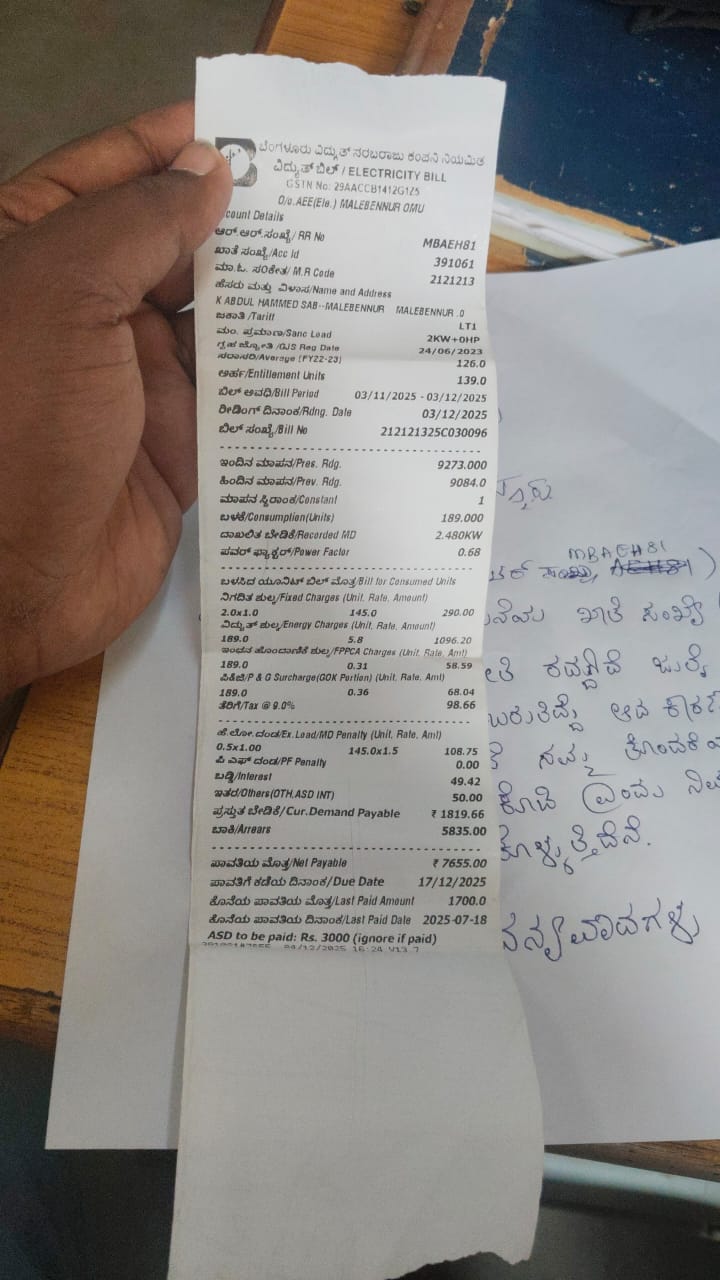 ಬೆಂಗಳೂರು ವಿದ್ಯುತ್ ಸರಬರಾಜು ಕಂಪನಿ ನಿಯಮಿತ
ವಿದ್ಯುತ್ ಬಿಲ್ / ELECTRICITY BILL
GSTN No: 29AACCB1412G1Z5
O/o.AEE(Ele.) MALEBENNUR OMU
count Details
ಆರ್.ಆರ್.ಸಂಖ್ಯೆ/ RR No MBAEH81
ಖಾತೆ ಸಂಖ್ಯೆ/Acc Id 391061
ಮಾ.ಓ. ಸಂಕೇತ/ M.R Code 2121213
ಹೆಸರು ಮತ್ತು ವಿಳಾಸ/Name and Address
K ABDUL HAMMED SAB--MALEBENNUR MALEBENNUR .0
ಜಕಾತಿ /Tariff LT1
ಮಂ. ಪ್ರಮಾಣ/Sanc Load 2KW+0HP
ಗೃಹ ಜ್ಯೋತಿ /GJS Reg Date 24/06/2023
ಸರಾಸರಿ/Average (FY22-23) 126.0
ಅರ್ಹ/Entitlement Units 139.0
ಬಿಲ್ ಅವಧಿ/Bill Period 03/11/2025 - 03/12/2025
ರೀಡಿಂಗ್ ದಿನಾಂಕ/Rdng. Date 03/12/2025
ಬಿಲ್ ಸಂಖ್ಯೆ/Bill No 212121325C030096
ಇಂದಿನ ಮಾಪನ/Pres. Rdg. 9273.000
ಹಿಂದಿನ ಮಾಪನ/Prev. Rdg. 9084.0
ಮಾಪನ ಸ್ಥಿರಾಂಕ/Constant 1
ಬಳಕೆ/Consumption(Units) 189.000
ದಾಖಲಿತ ಬೇಡಿಕೆ/Recorded MD 2.480KW
ಪವರ್ ಫ್ಯಾಕ್ಟರ್/Power Factor 0.68
ಬಳಸಿದ ಯೂನಿಟ್ ಬಿಲ್ ಮೊತ್ತ/Bill for Consumed Units
ನಿಗದಿತ ಶುಲ್ಕ/Fixed Charges (Unit, Rate, Amount)
2.0x1.0 145.0 290.00
ವಿದ್ಯುತ್ ಶುಲ್ಕ/Energy Charges (Unit, Rate, Amount)
189.0 5.8 1096.20
ಇಂಧನ ಹೊಂದಾಣಿಕೆ ಶುಲ್ಕ/FPPCA Charges (Unit, Rate, Amt)
189.0 0.31 58.59
ಪಿ&ಜಿ/P & G Surcharge(GOK Portion) (Unit, Rate, Amt)
189.0 0.36 68.04
ತೆರಿಗೆ/Tax @ 9.0% 98.66
ಹೆ.ಲೋ.ದಂಡ/Ex.Load/MD Penalty (Unit, Rate, Amt)
0.5x1.00 145.0x1.5 108.75
ಪಿ ಎಫ್ ದಂಡ/PF Penalty 0.00
ಬಡ್ಡಿ/Interest 49.42
ಇತರ/Others(OTH,ASD INT) 50.00
ಪ್ರಸ್ತುತ ಬೇಡಿಕೆ/Cur.Demand Payable ₹ 1819.66
ಬಾಕಿ/Arrears 5835.00
ಪಾವತಿಯ ಮೊತ್ತ/Net Payable ₹ 7655.00
ಪಾವತಿಗೆ ಕಡೆಯ ದಿನಾಂಕ/Due Date 17/12/2025
ಕೊನೆಯ ಪಾವತಿಯ ಮೊತ್ತ/Last Paid Amount 1700.0
ಕೊನೆಯ ಪಾವತಿಯ ದಿನಾಂಕ/Last Paid Date 2025-07-18
ASD to be paid: Rs. 3000 (ignore if paid)
MBAEH81
ಖಾತೆ ಸಂಖ್ಯೆ
ಆದ
ನಮ್ಮ